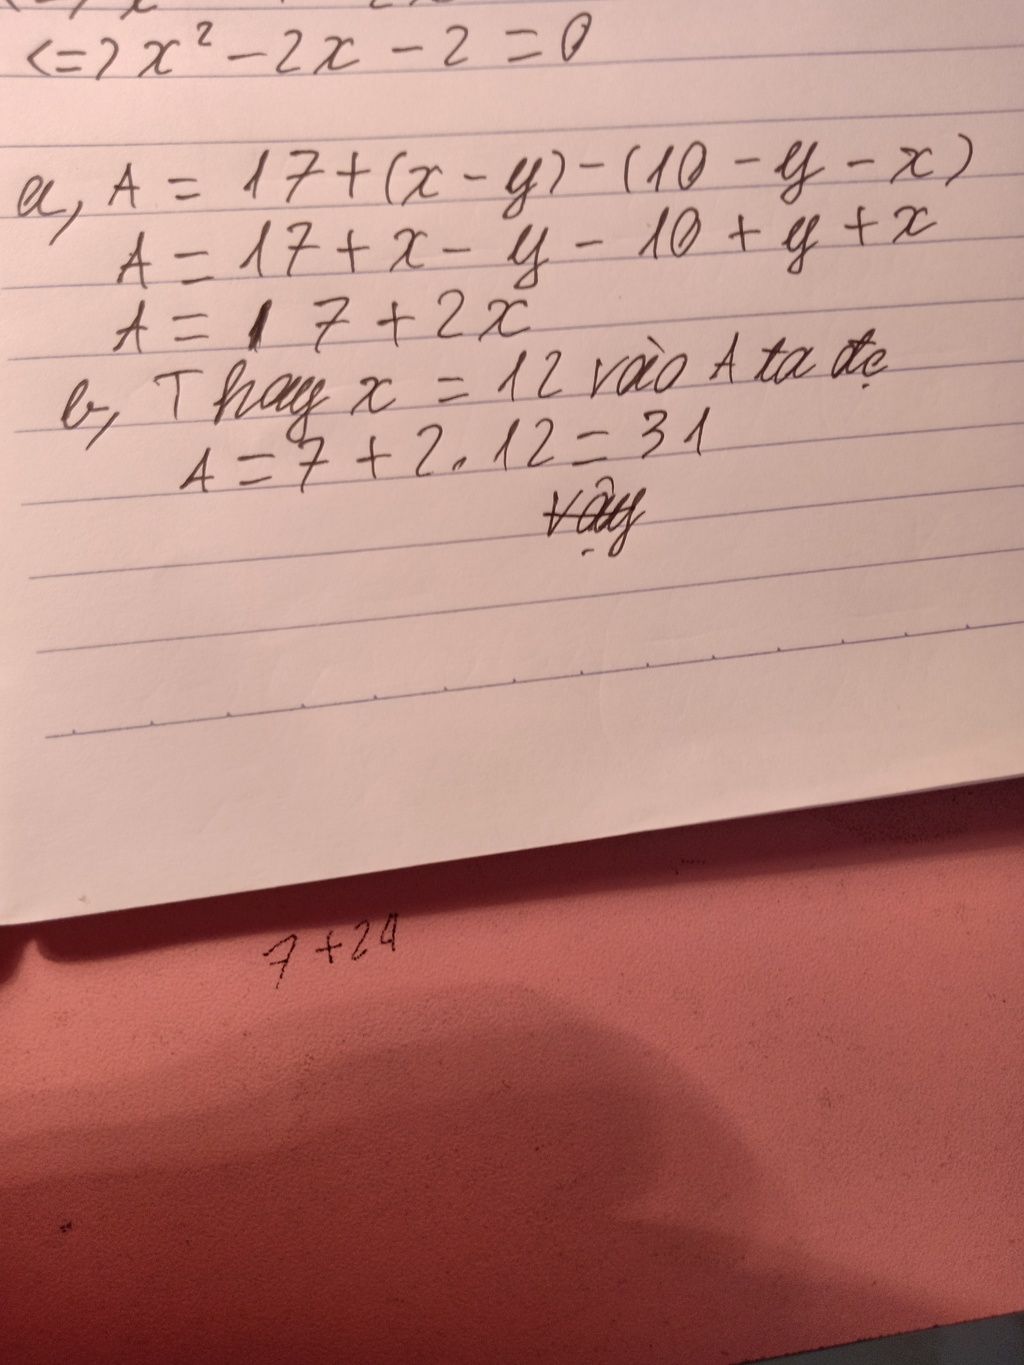 <=> x² - 2x - 2 = 0
a, A = 17 + (x - y) - (10 - y - x)
A = 17 + x - y - 10 + y + x
A = 1 7 + 2x
b, Thay x = 12 vào A ta đc
A = 7 + 2. 12 = 31
vậy
7 + 24